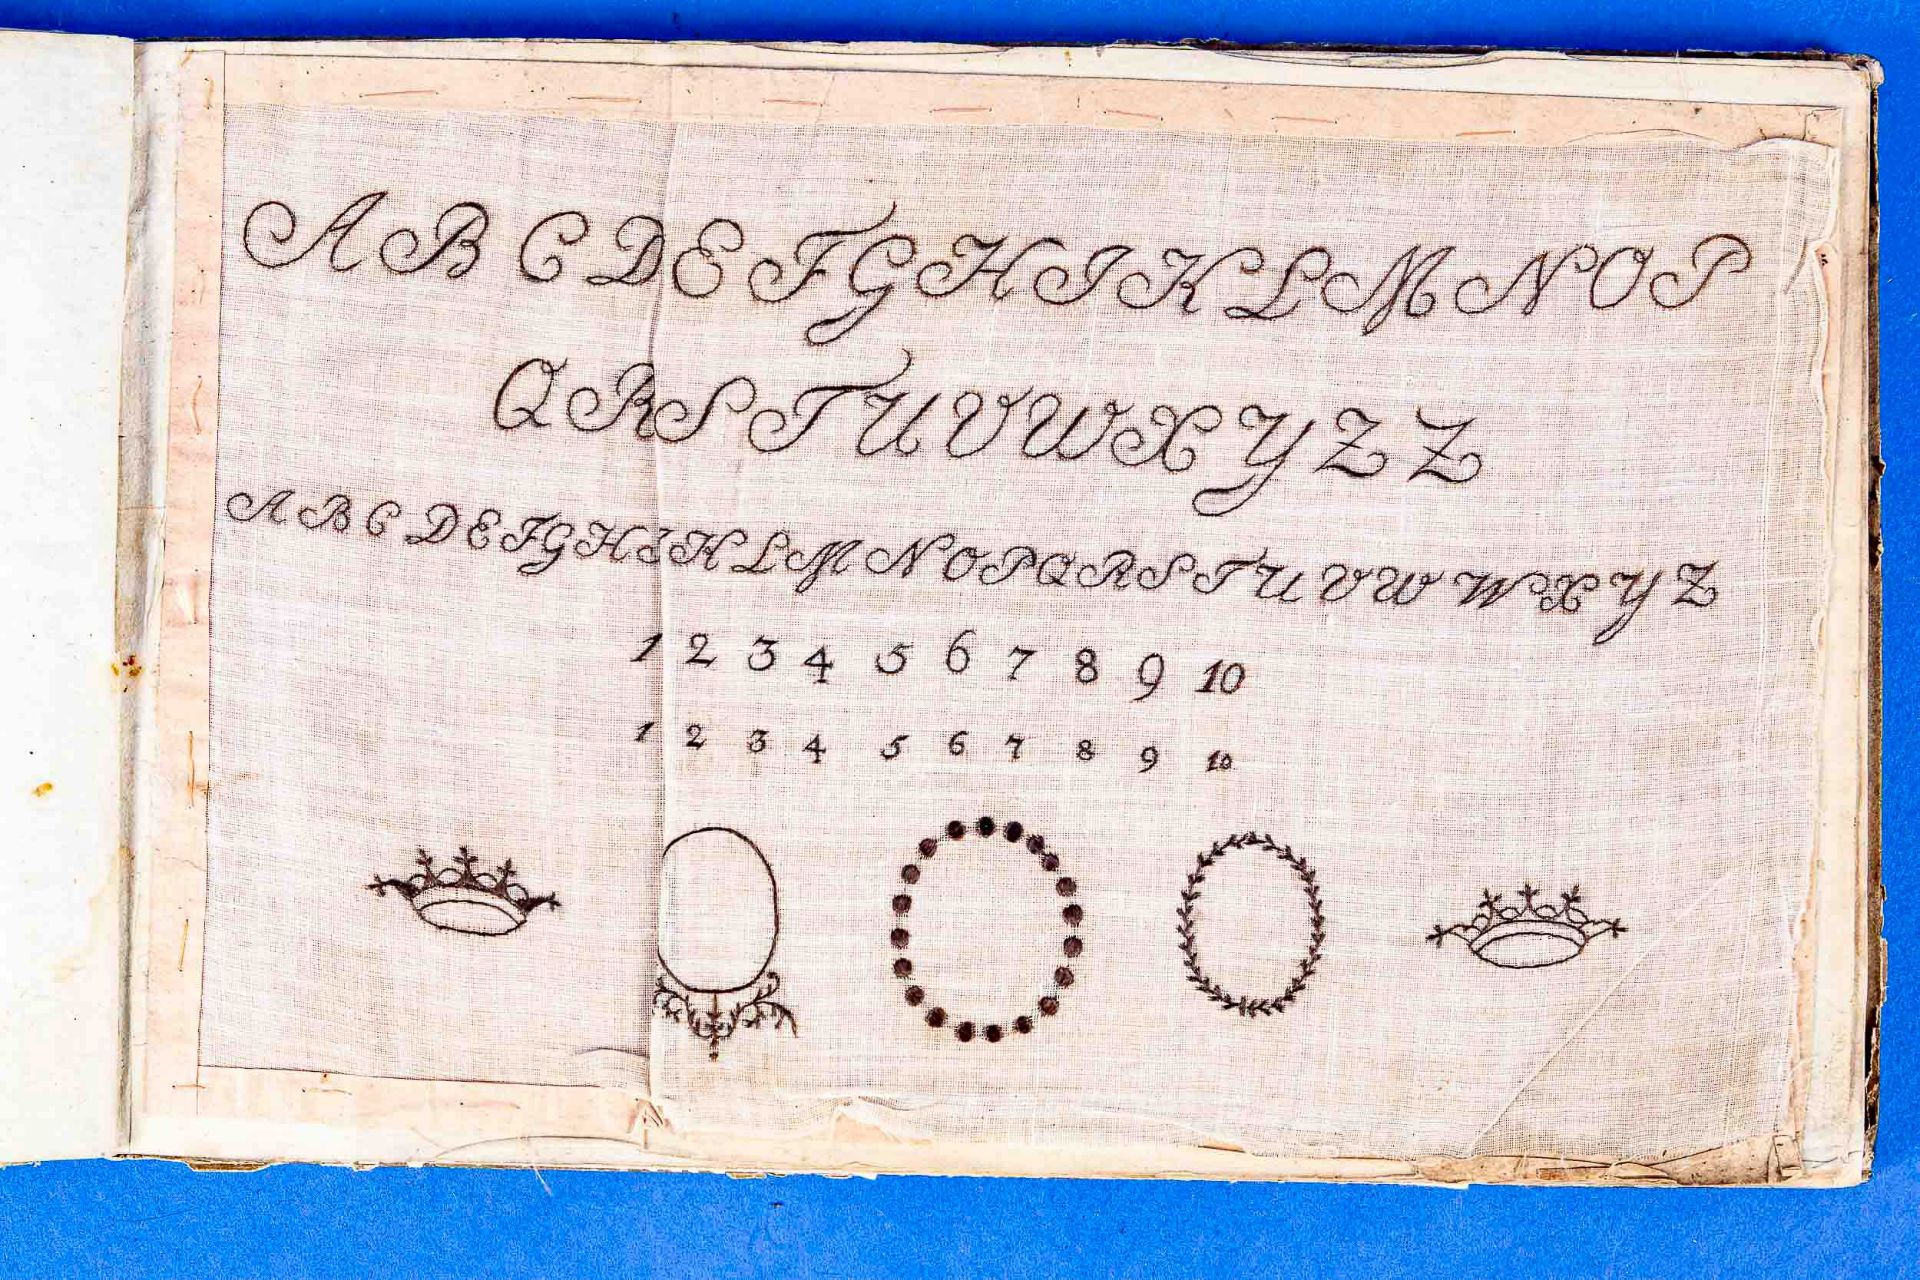 A B C D E F G H I K L M N O P
Q R S T U V W X Y Z Z
A B C D E F G H I K L M N O P Q R S T U V W W X Y Z
1 2 3 4 5 6 7 8 9 10
1 2 3 4 5 6 7 8 9 10